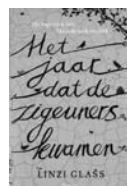 Het
jaar
dat de
zigeuners
kwamen
LINZI GLASS